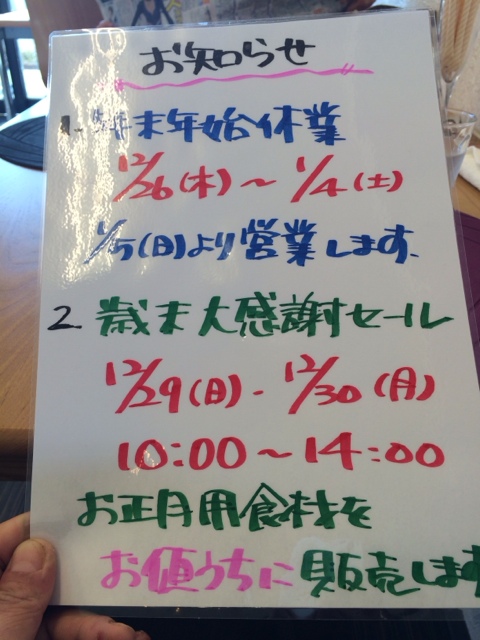 お知らせ
1. 年末年始休業
12/26(木)～1/4(土)
1/5(日)より営業します.
2. 歳末大感謝セール
12/29(日)-12/30(月)
10:00～14:00
お正月用食材を
お値うちに販売します